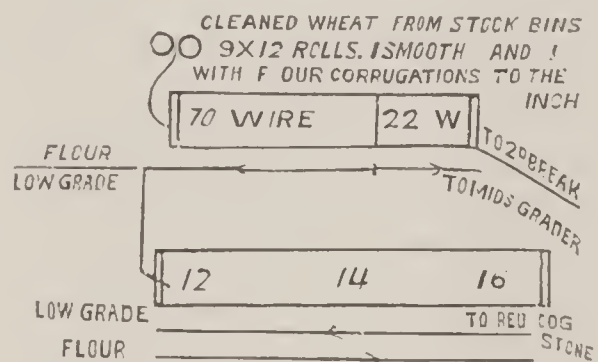 CLEANED WHEAT FROM STOCK BINS
9X12 ROLLS. 1 SMOOTH AND 1
WITH F OUR CORRUGATIONS TO THE
INCH
70 WIRE 22 W
TO 2D BREAK
FLOUR
LOW GRADE
TO MIDS GRADER
12 14 16
LOW GRADE
TO RED COG
STONE
FLOUR